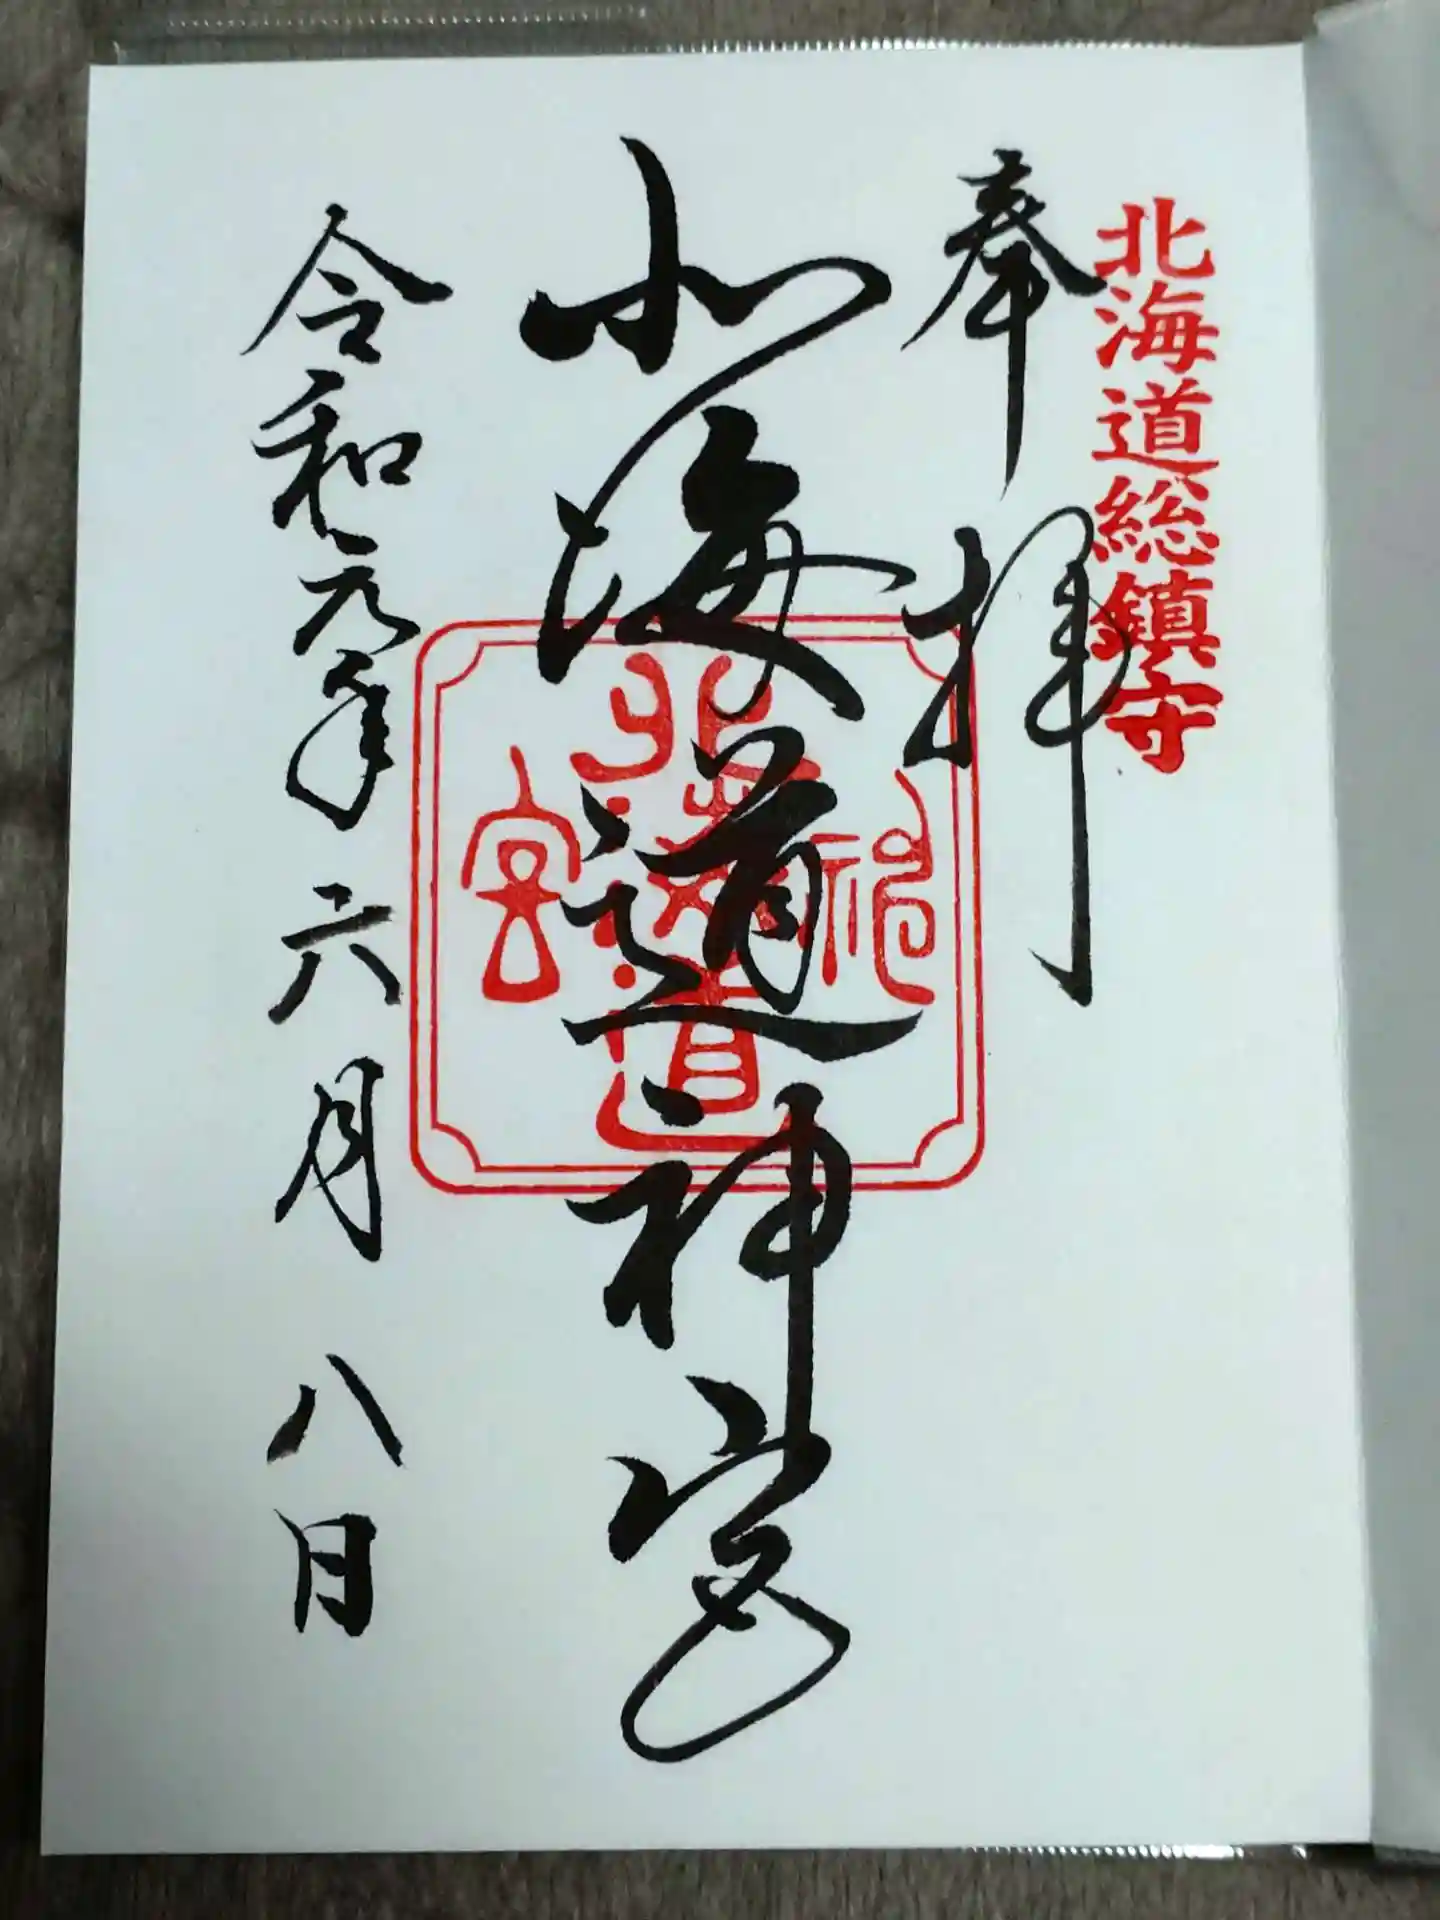 北海道総鎮守
奉拝
北海道神宮
北海道神宮
令和元年六月八日